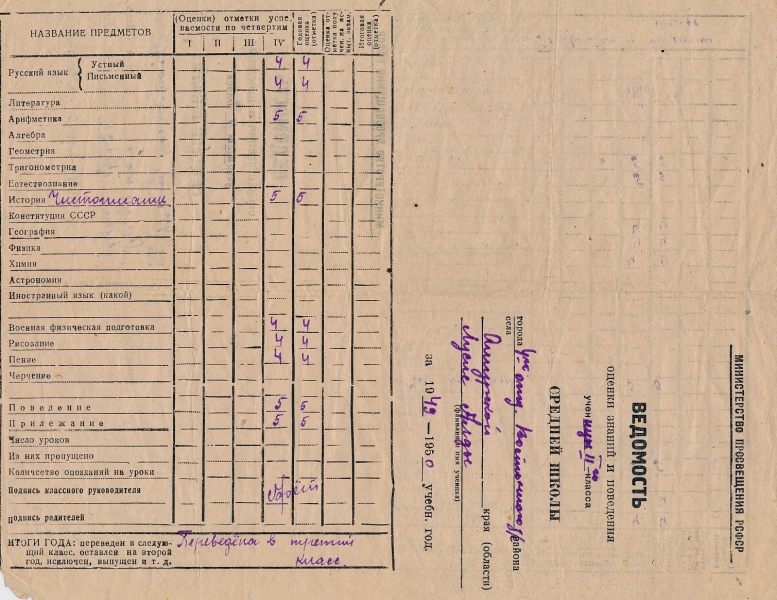 НАЗВАНИЕ ПРЕДМЕТОВ
(Оценки) отметки успеваемости по четвертям
I II III IV
Годовая оценка (отметка)
Итоговая оценка (отметка)
Русский язык
Устный 4 4
Письменный 4 4
Литература
Арифметика 5 5
Алгебра
Геометрия
Тригонометрия
Естествознание
История Чистописание 5 5
Конституция СССР
География
Физика
Химия
Астрономия
Иностранный язык (какой)
Военная физическая подготовка 4 4
Рисование 4 4
Пение 4 4
Черчение
Поведение 5 5
Прилежание 5 5
Число уроков
Из них пропущено
Количество опозданий на уроки
Подпись классного руководителя
Подпись родителей
ИТОГИ ГОДА: переведен в следую-
щий класс, оставлен на второй
год, исключен, выпущен и т. д.
Переведена в третий
класс.
МИНИСТЕРСТВО ПРОСВЕЩЕНИЯ РСФСР
ВЕДОМОСТЬ
оценки знаний и поведения
ученицы II-го класса
СРЕДНЕЙ ШКОЛЫ
города
села
района
Амурской края (области)
(фамилия и имя ученика)
за 1949 — 1950 учебн. год.